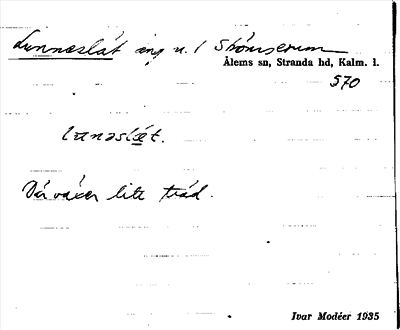 Lunneslåt äng u. 1 Strömserum
Ålems sn, Stranda hd, Kalm. l.
570
lunəslæt.
Där växer lite träd.
Ivar Modéer 1935